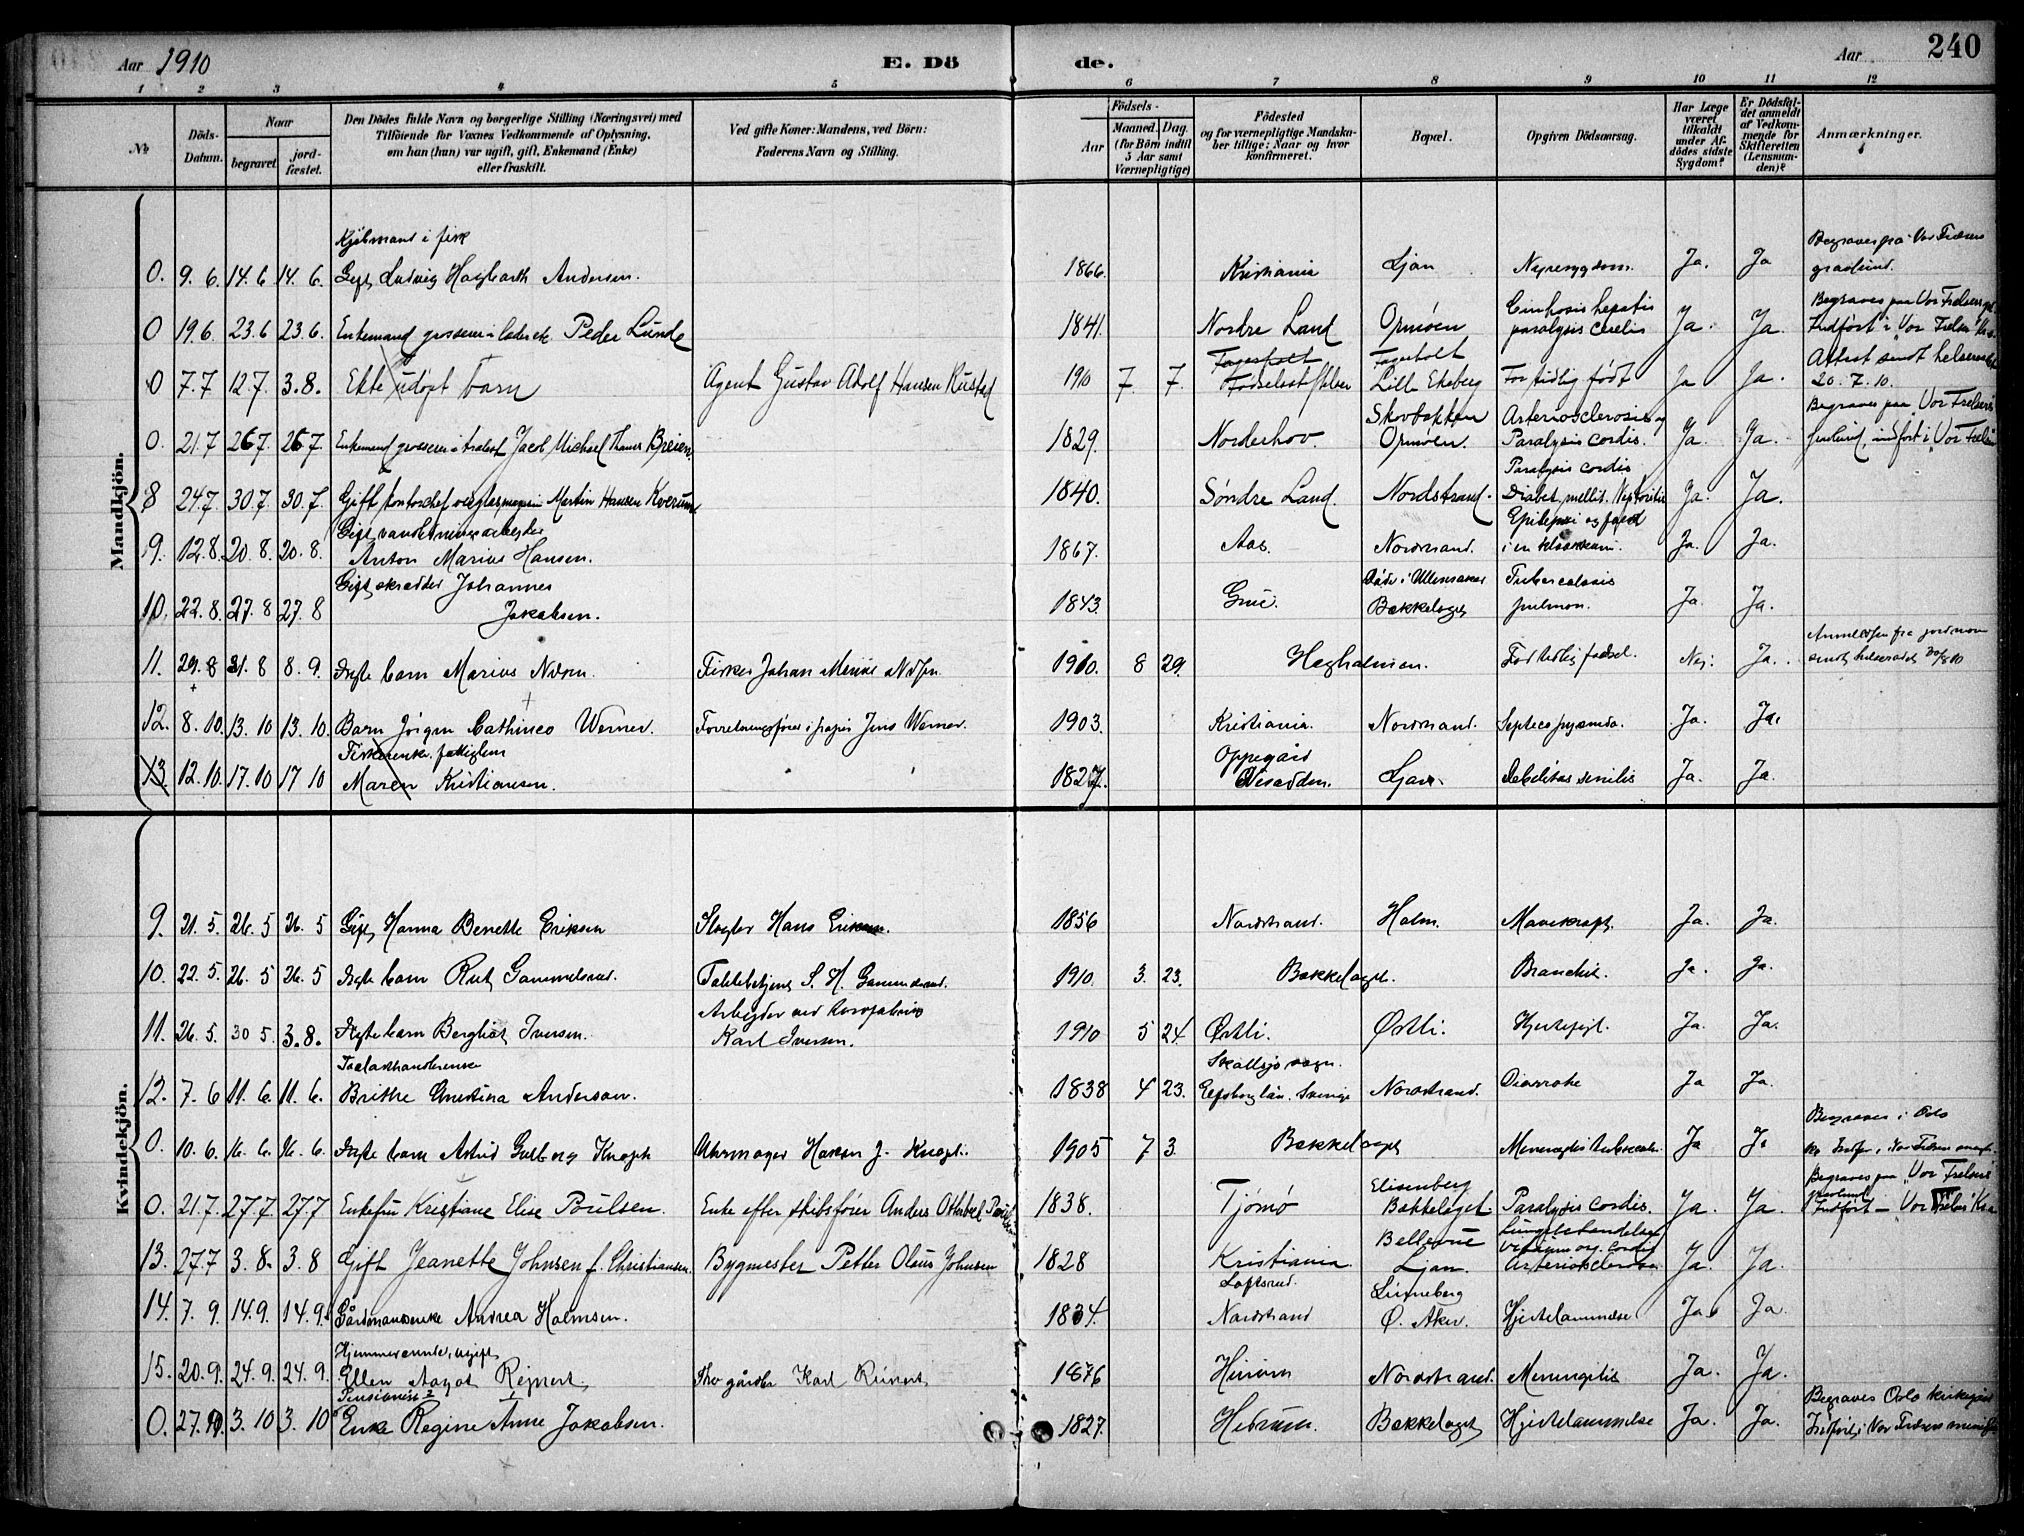 Aar 1910 E. Dö de. Aar 240
1 2 3 4 5 6 7 8 9 10 11 12
№ Döds-Datum. Naar begravet jordfæstet. Den Dödes fulde Navn og borgerlige Stilling (Næringsvei) med Tilföiende for Voxnes Vedkommende af Oplysning, om han (hun) var ugift, gift, Enkemand (Enke) eller fraskilt. Ved gifte Koner: Mandens, ved Börn: Faderens Navn og Stilling. Födsels- Aar Maaned. Dag. (for Börn indtil 5 Aar samt Værnepligtige) Födested og for værnepligtige Mandskaber tillige: Naar og hvor konfirmeret. Bopæl. Opgiven Dödsaarsag. Har Læge været tilkaldt under Afdödes sidste Sygdom? Er Dödsfaldet anmeldt af Vedkommende for Skifteretten (Lensmanden)? Anmærkninger.
Mandkjön.
Kjøbmand i fisk
0. 9. 6. 14. 6 14. 6. Gift, Ludvig Hagbarth Andersen. 1866. Kristiania Ljan Nyresygdom. Ja. Ja Begraves på Vor Frelsers gravlund.
0 19.6. 23.6 23.6. Enkemand grosserer i læder etc Peder Lunde 1841. Nordre Land Ormøen Cirrhosis hepatis paralysis cordis Ja. Ja. Begraves paa Vor Frelsers Indført i Vor Frelser
0 7.7 12.7. 3.8. Ekte udøpt barn Agent Gustav Adolf Hansen Rustad 1910 7 7. Fagerholt Lill Ekeberg For tidlig født Ja Ja. Attest sendt 20.7.10.
0. 21.7 26.7. 26.7 Enkemand grosserer i trælast Jacob Michael Breien. 1829. Norderhov. Skovbakken Ormøen. Arteriosclerosis og Paralysis cordis. Ja. Ja. Begraves paa Vor Frelsers indført i Vor Frelser
8 24.7 30.7. 30.7. Gift kontorchef Martin Hansen Kverum 1840. Søndre Land. Nordstrand. Paralysis cordis Diabet. mellit. Ja. Ja.
Gift,
9. 12.8. 20.8. 20.8. Anton Marius Hansen. 1867. Aas. Nordstrand. Epilepsi og fald i en Ja. Ja.
Gift, skrædder Johannes
10. 22.8. 27.8 27.8 Jakobsen. 1843. Grue. Døde i Ullensaker Bækkelaget Tuberculosis pulmon. Ja. Ja.
11. 29.8 31.8 8.9. Ægte barn Marius Fisker Johan 1910. 8 29. Hegholmen. For tidlig fødsel. Nej. Ja. Anmeldelse fra jordmor sendt helseraadet 30/8 10
12. 8.10. 13.10 13.10. Barn Jørgen Cathinco Werner. Forretningsfører i papir Jens Werner. 1903. Kristiania. Nordstrand. Septico pyæmia. Ja. Ja.
Fiskerenke, fattiglem
13. 12.10. 17.10 17 10 Maren Kristiansen. 1827. Oppegård Ljan. Debilitas senilis Ja. Ja.
Kvindekjön.
9. 21. 5. 26. 5 26. 5 Gift, Hanna Benette Eriksen Slagter Hans Eriksen. 1856 Nordstrand. Holm. Mavekræft. Ja. Ja.
10. 22. 5. 26. 5 26. 5 Ægte barn Rut Gammelsrud. S. H. Gammelsrud. 1910. 3. 23. Bækkelaget. Bronchit. Ja. Ja.
Arbejder ved
11. 26. 5. 30 5. 3.8. Ægte barn Bergliot Iversen. Karl Iversen. 1910 5 24. Østli. Østli. Hjertefejl. Ja. Ja.
12. 7. 6 11. 6. 11. 6. Britke Christina Anderson. 1838 4 23. Skallsjö sogn. Elfsborg län. Sverige Nordstrand. Diarrohe Ja Ja.
0. 10. 6. 16. 6. 16. 6. Ægte barn Astrid Solborg Knoph Uhrmager Haken J. Knoph. 1905 7 3. Bækkelaget Meningitis tuberculos. Ja Ja Begraves i Oslo
0. 21.7. 27.7. 27.7 Enkefru Kristiane Elise Poulsen. Enke efter skibsfører Anders 1838. Tjømø Elisenberg Bækkelaget. Paralysis cordis. Ja. Ja. Begraves paa Vor Frelsers gravlund Indført – Vor Frelser Kra
13. 27.7 3. 8. 3. 8 Gift Jeanette Johnsen f. Christiansen. Bygmester Petter Olaus Johnsen 1828 Kristiania. Bellevue Ljan. Lungebetændelse Vitium org. cordis Arteriosclerose Ja. Ja.
14. 7. 9. 14.9. 14.9. Gårdmandsenke Andrea Holmsen. 1834. Loftsrud. Nordstrand Linneberg Ø. Aker. Hjertelammelse Ja. Ja.
Hjemmeværende, ugift,
15. 20.9. 24.9. 24.9. Ellen Aagot Reinert, Karl Reinert, 1876 Hurum Nordstrand. Meningitis Ja. Ja.
Pensionist
0. 27. 3. 10 3. 10 Enke Regine Anne Jakobsen. 1827. Hedrum. Bækkelaget, Hjertelammelse Ja. Ja. Begraves Oslo kirkegård Indført i Vor Frelsers